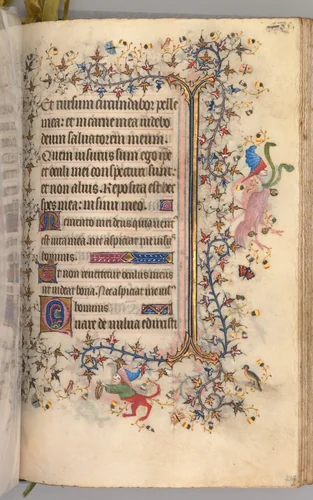 Et rursum circundabor pelle
mea: et in carne mea videbo
deum salvatorem meum.
Quem visurus sum ego ipe
et oculi mei conspecturi sunt:
et non alius. Reposita est hec
spes mea: in sinu meo.
Memento mei deus quia vent9
est vita mea. nec aspiciat me visus
hominis
Et non revertetur oculus meus
ut videat bona. Nec aspiciat me vis9
hominis
Quare de vulva eduxisti